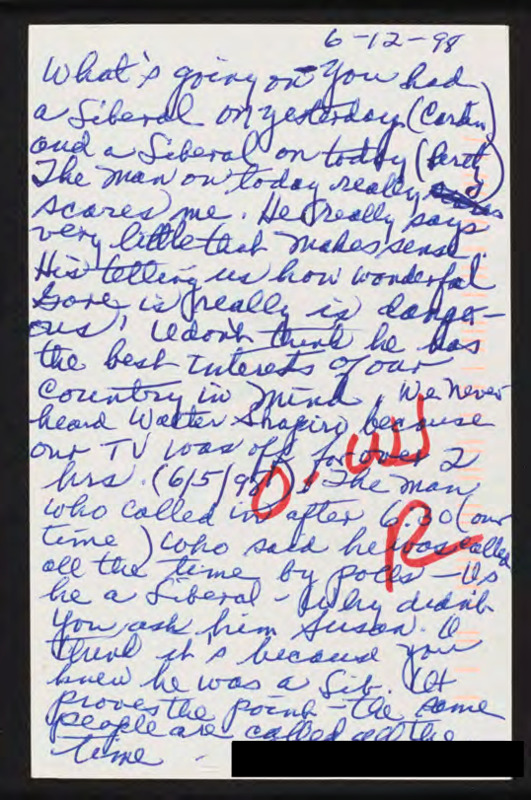 6-12-98
What's going on - You had
a Liberal on yesterday (Corbin)
and a Liberal on today (Peretz)
The man on today really
scares me. He really says
very little that makes sense!
His telling us how wonderful
Gore is (really is danger-
ous)! I don't think he has
the best interests of our
country in mind. We never
heard Walter Shapiro because
our TV was off for over 2
hrs. (6/5/98). The man
who called in after 6:30 (our
time) who said he was called
all the time by polls - Is
he a Liberal - Why didn't
you ask him Susan. I
think it's because you
knew he was a Lib. It
proves the point - the same
people are called all the
time -
R